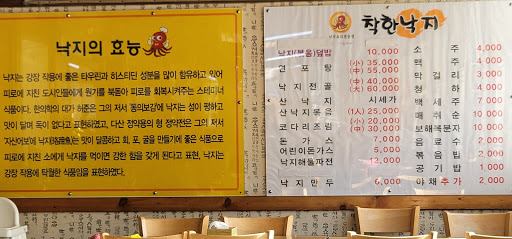 낙지의 효능
낙지는 강장 작용에 좋은 타우린과 히스티딘 성분을 많이 함유하고 있어
피로에 지친 도시인들에게 원기를 북돋아 피로를 회복시켜주는 스테미너
식품이다. 한의학의 대가 허준은 그의 저서 동의보감에 낙지는 성이 평하고
맛이 달며 독이 없다고 표현하였고, 다산 정약용의 형 정약전은 그의 저서
자산어보에 맛이 달콤하고 회, 포, 국을 만들기에 좋은 식품으로
피로에 지친 소에게 낙지를 먹이면 강한 힘을 갖게 된다고 표현, 낙지는
강장 작용에 탁월한 식품임을 표현하였다.
착한낙지
낙지(볶음)덮밥 10,000
연포탕 (小) 35,000
(中) 55,000
낙지전골 (中) 40,000
(大) 60,000
산낙지 시세가
산낙지볶음 (1人) 25,000
코다리조림 (小) 20,000
(中) 30,000
돈가스 7,000
어린이돈가스 5,000
낙지해물파전 12,000
낙지만두 6,000
소주 4,000
맥주 4,000
막걸리 3,000
청하 4,000
백세주 7,000
매취순 10,000
보해복분자 10,000
음료수 2,000
볶음밥 2,000
공기밥 1,000
야채추가 2,000